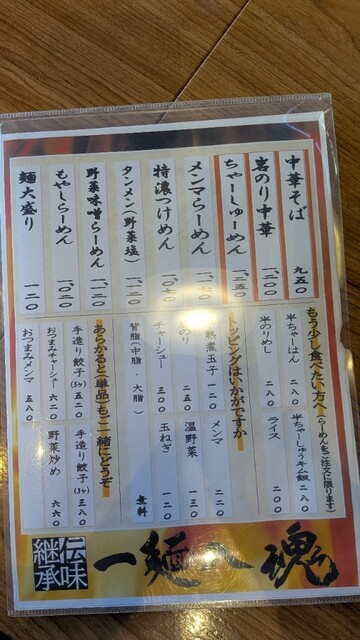 中華そば 九五〇
岩のり中華 一、二〇〇
ちゃーしゅーめん 一、二五〇
メンマらーめん 一、一七〇
特濃つけめん 一、〇七〇
タンメン(野菜塩) 一、一二〇
野菜味噌らーめん 一、一二〇
もやしらーめん 一、〇二〇
麺大盛り 一二〇
もう少し食べたい方へ(らーめんをご注文に限ります)
半ちゃーはん 二八〇
半ちゃーしゅうキム飯 二八〇
半のりめし 二八〇
ライス 二〇〇
トッピングはいかがですか
熟煮玉子 一二〇
メンマ 二二〇
のり
温野菜 一七〇
チャーシュー 三〇〇
玉ねぎ 一二〇
背脂(中脂・大脂) 無料
あらかると(単品)もご一緒にどうぞ
手造り餃子(5ヶ) 五二〇
手造り餃子(3ヶ) 三八〇
おつまみチャーシュー 六二〇
野菜炒め 六六〇
おつまみメンマ 五八〇
伝味
継承
一麺入魂